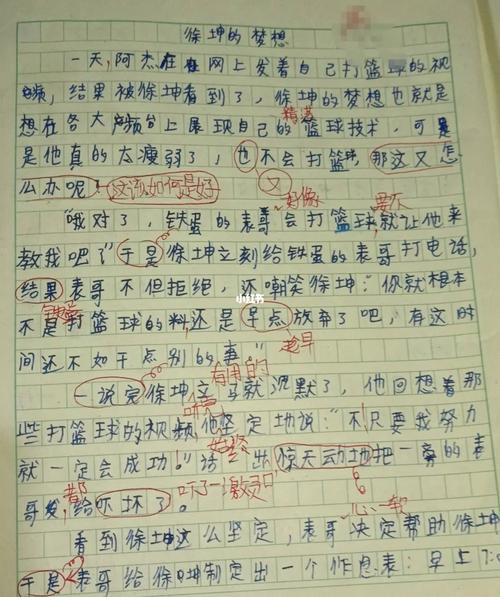 徐坤的梦想
一天,阿杰在网上发着自己打篮球的视
频,结果被徐坤看到了,徐坤的梦想也就是
精湛
想在各大平台上展现自己的篮球技术,可是
是他真的太瘦弱了,也不会打篮球,那这又怎
么办呢!这该如何是好
又
好像 要不
"哦对了,铁蛋的表哥会打篮球就让他来
教我吧了"于是徐坤立刻给铁蛋的表哥打电话,
结果表哥不但拒绝,还嘲笑徐坤:"你就根本
不是打篮球的料还是早点放弃了吧,有这时
趁早
间还不如干点别的事"
有用的
一说完徐坤立马就沉默了,他回想着那
听完
些打篮球的视频,他坚定地说:"不!只要我努力
就一定会成功!"话出惊天动地把一旁的表
哥给吓坏了。
都
吓了一激灵
心一软
看到徐坤这么坚定,表哥决定帮助徐坤
于是表哥给徐坤制定出一个作息表:早上7:0
小红书